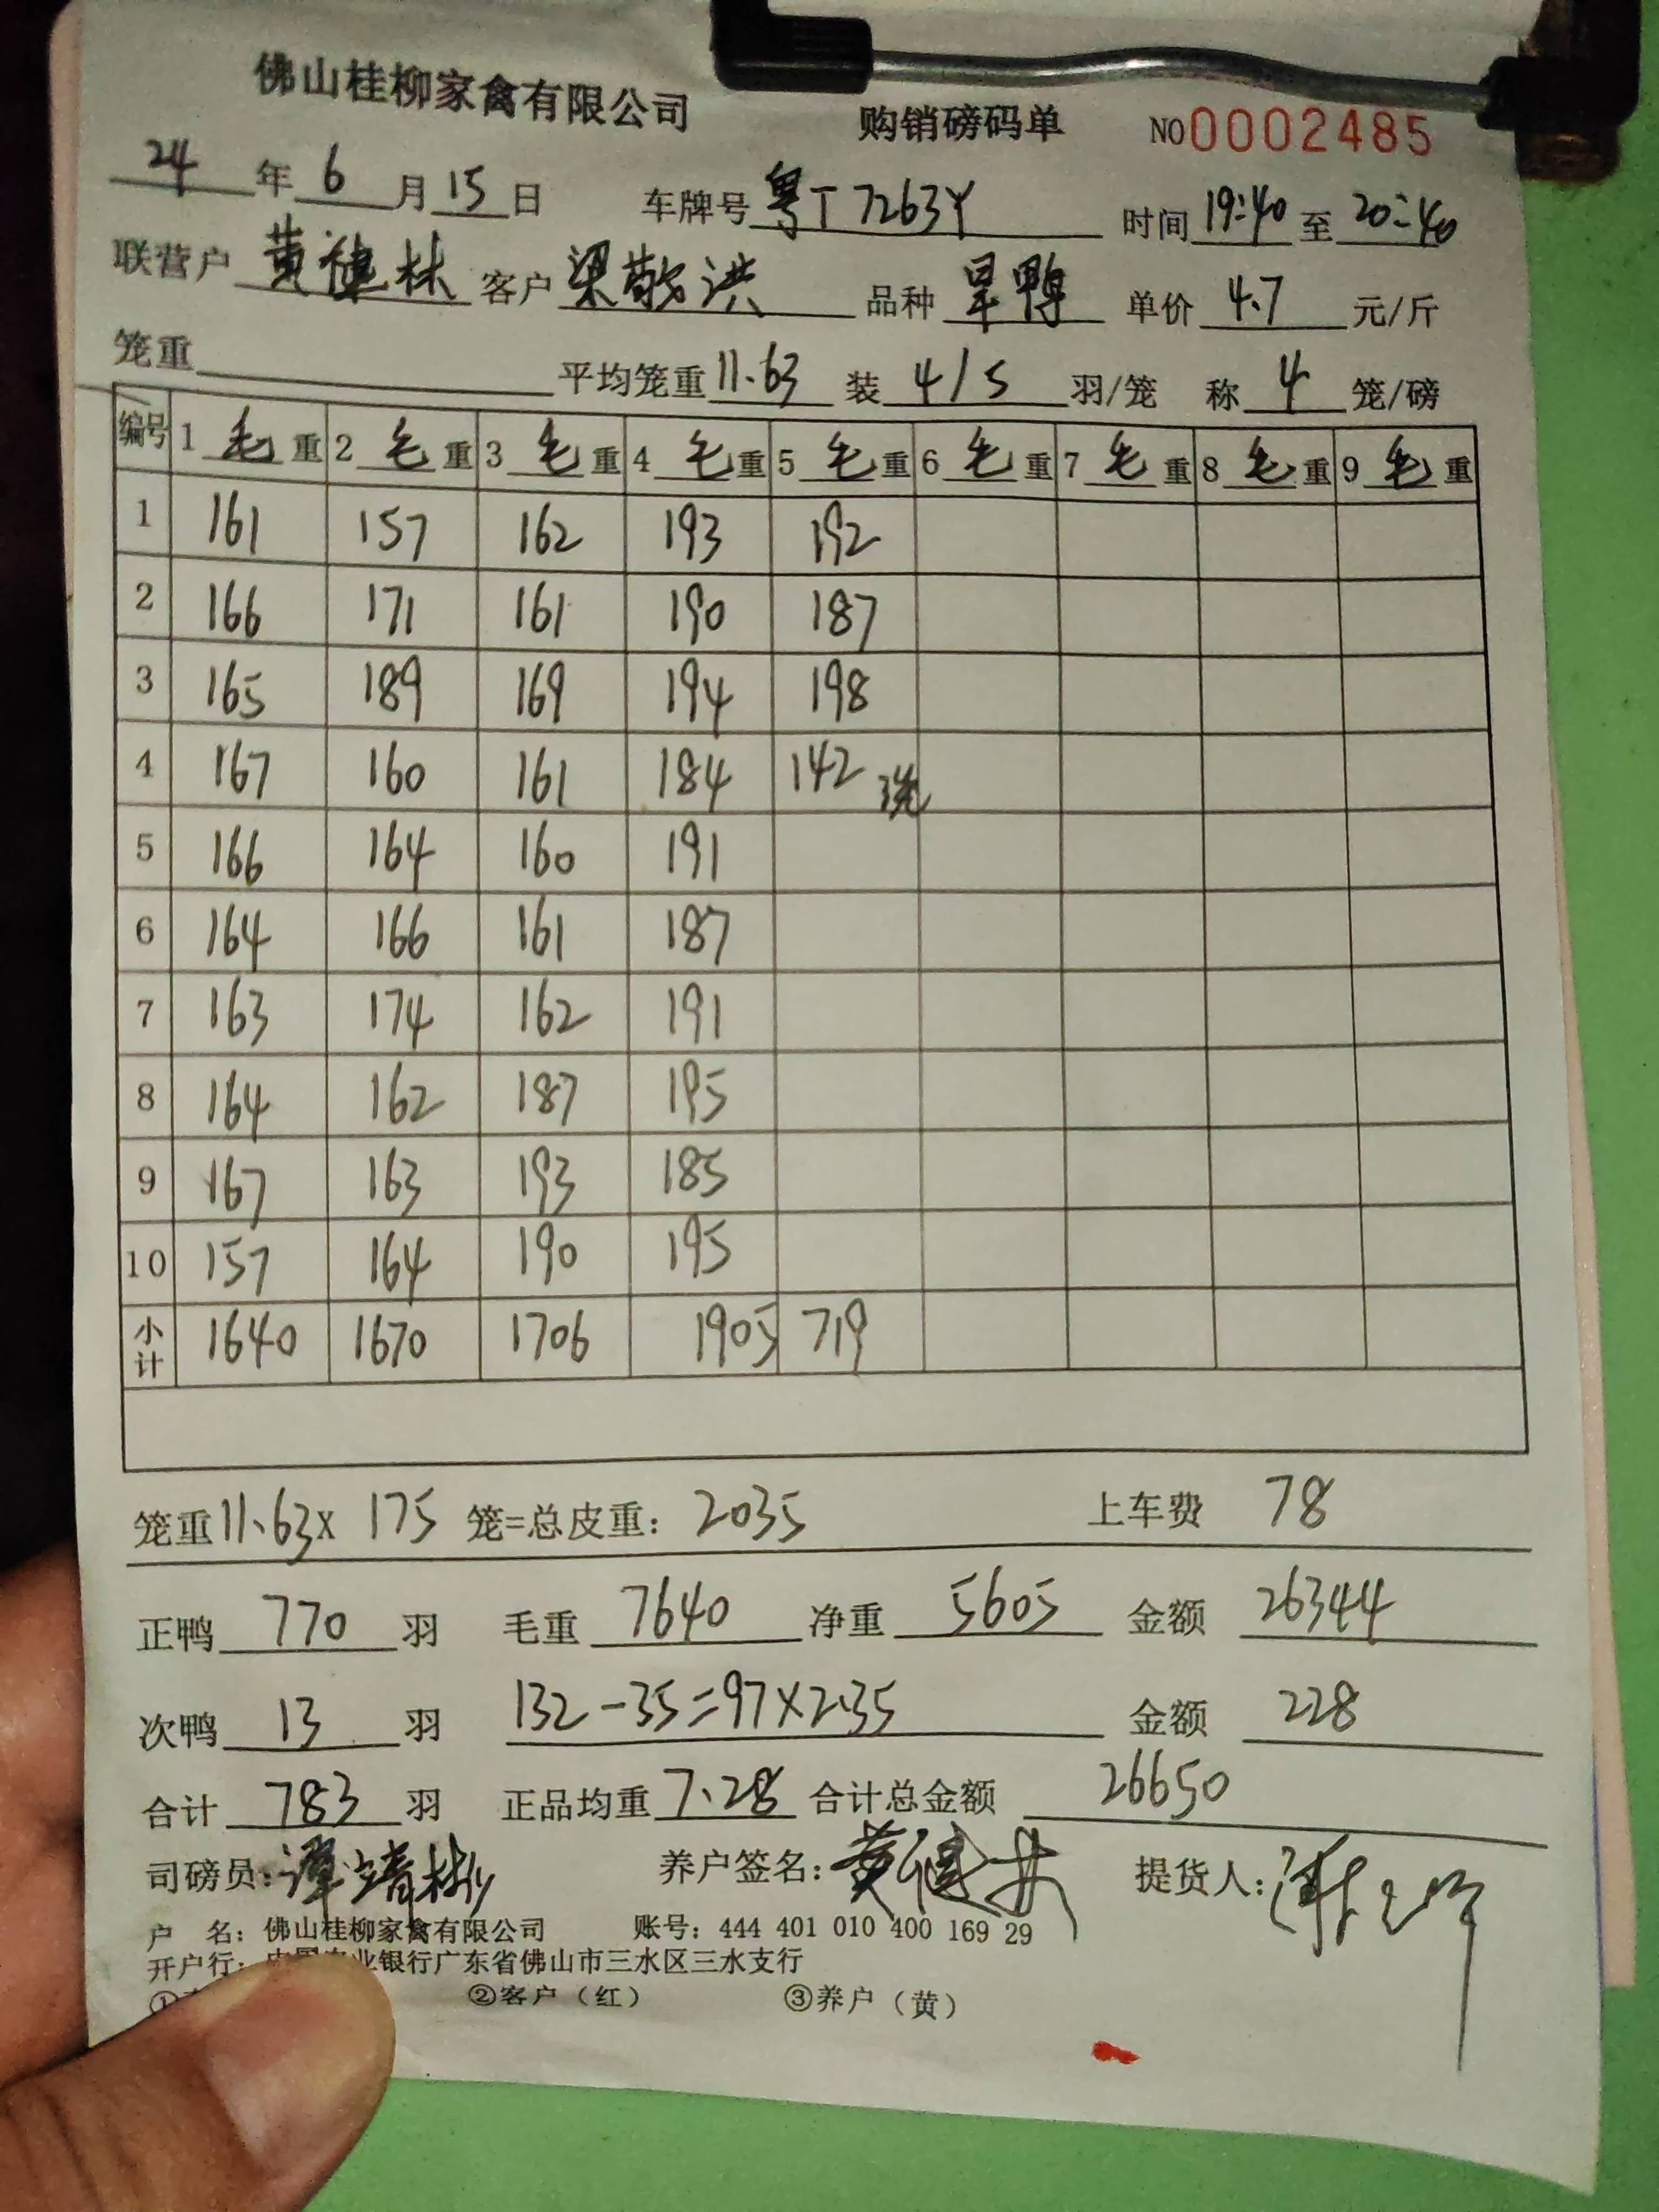 佛山桂柳家禽有限公司 购销磅码单 NO 0002485
24 年 6 月 15 日 车牌号 粤T7263Y 时间 19:40 至 20:40
联营户 黄健林 客户 梁敬洪 品种 旱鸭 单价 4.7 元/斤
笼重 平均笼重 11.63 装 4/5 羽/笼 称 4 笼/磅
编号 1 毛 重 2 毛 重 3 毛 重 4 毛 重 5 毛 重 6 毛 重 7 毛 重 8 毛 重 9 毛 重
1 161 157 162 193 192
2 166 171 161 190 187
3 165 189 169 194 198
4 167 160 161 184 142
5 166 164 160 191
6 164 166 161 187
7 163 174 162 191
8 164 162 187 195
9 167 163 193 185
10 157 164 190 195
小计 1640 1670 1706 1905 719
笼重 11.63 x 175 笼=总皮重: 2035 上车费 78
正鸭 770 羽 毛重 7640 净重 5605 金额 26344
次鸭 13 羽 132-35=97×2.35 金额 228
合计 783 羽 正品均重 7.28 合计总金额 26650
司磅员: 谭靖彬 养户签名: 黄健林 提货人:
户 名: 佛山桂柳家禽有限公司 账号: 444 401 010 400 169 29
开户行: 业银行广东省佛山市三水区三水支行
① ②客户（红） ③养户（黄）